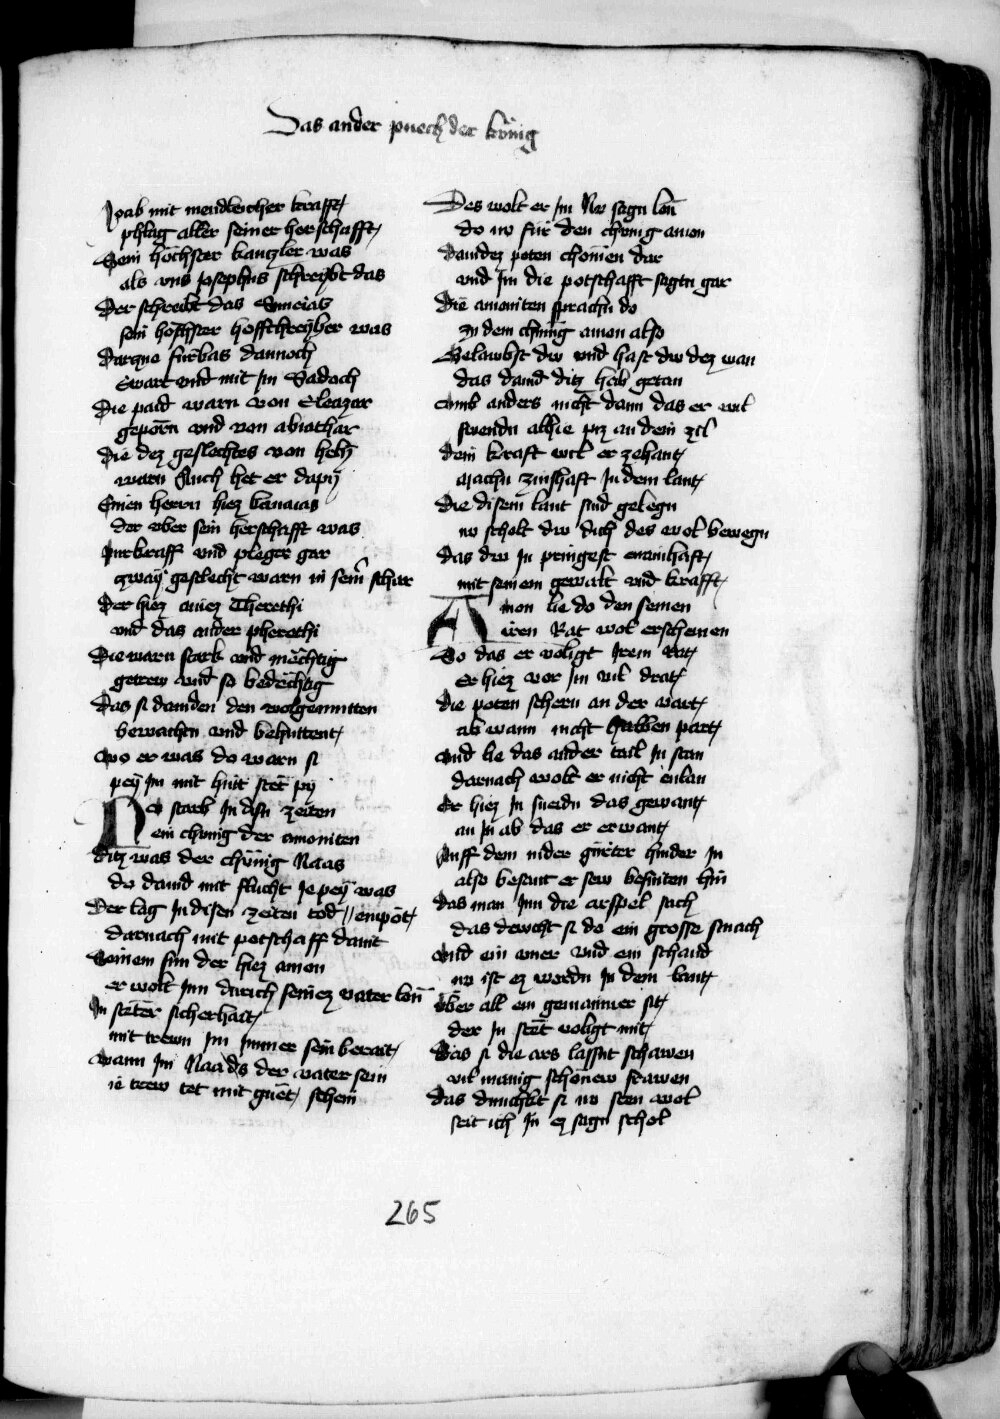 Das ander puech der könig
Joab mit mendleicher krafft
phlag aller seiner herschafft
Sein höchster kanczler was
als vns Josephus schreybt das
Der schreibt das Suncias
sein höchster hoffschreyber was
Darzue fürbas dannoch
Ewart vnd mit im Sadoch
Die paid warn von Eleazar
geporn vnd von abiathar
Die dez geslechtes von hely
warn Auch het er dapey
Einen herrn hiez banaias
der vber sein herschafft was
Purkraff vnd pfleger gar
zway geslecht warn in seiner schar
Der hiez ainez Cherethi
vnd das ander pherethi
Die warn stark vnd mächtig
getrew vnd so bedächtig
Das si dauiden den wolgemuten
bewachten vnd behuttent
Wo er was do warn si
pey im mit hüt stet pey
Do starb In disn zeiten
ein chünig der amoniten
Ditz was der chünig Naas
do dauid mit flucht ie pey was
Der lag In disen zeiten tod // enpot
darnach mit potschaff dauit
Seinem sun der hiez amon
er wolt Inn durich seinez vater lon
In steter sicherhait
mit trewn Im Immer sein berait
Wann Im Naads der vater sein
ie trew tet mit guet schein
Des wolt er im Nw sagn lon
do nw für den chönig amon
Dauidez poten chomen dar
vnd Im die potschafft sagtn gar
Die amoniten sprachn do
zu dem chünig amon also
Gelaubst dw vnd hast dw dez wan
das dauid ditz hab getan
Vmb anders nicht dann das er wil
sendn alhie piz an dein zil
dein kraft wil er zehant
machn zinshaft In dem lant
Die disem lant sind gelegn
nw scholt dw dich des wol bewegn
das dw In pringest
mit seinem gewalt vnd krafft
Amon lie do den seinen
iren Rat wol erscheinen
So das er volligt Irem Rat
Er hiez vor Im vil drat
die poten schern an der vart
ab wann nicht halben part
Vnd lie das ander tail In stan
darnach wolt er nicht enlan
Er hiez In sneidn das gewant
an In ab das er erwant
Auff dem nider gürter hinder In
also besant er sew hin
das man Inn die arspel sach
das dewcht si do ein grosse smach
Vnd ein vner vnd ein schand
nw ist ez wordn In dem lant
vber all ein gemainer sit
der In stet volligt mit
Das si die ars lassnt schawen
vil manig schonew frawen
das dunchkt si nw sten wol
seit ich In ez sagn schol
265